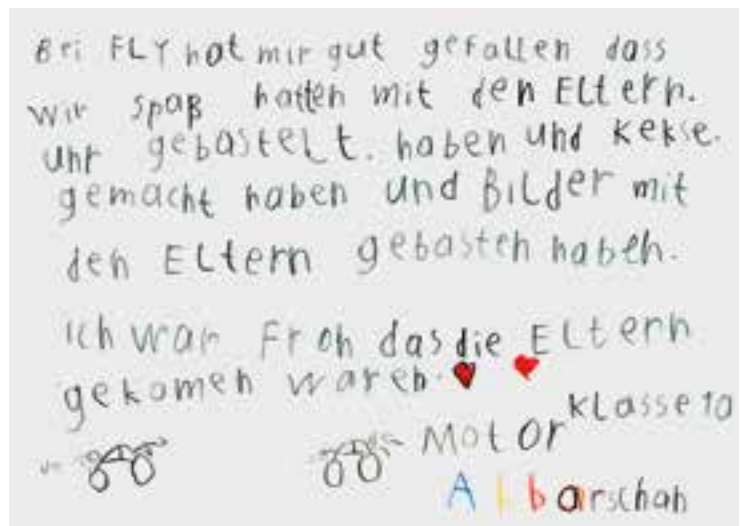 Bei FLY hat mir gut gefallen dass
wir spaß hatten mit den Eltern.
Uhr gebastelt. haben und Kekse.
gemacht haben und Bilder mit
den Eltern gebasteh haben.
Ich war Froh das die Eltern
gekomen waren.
Klasse 1a
Motor
Albarschah